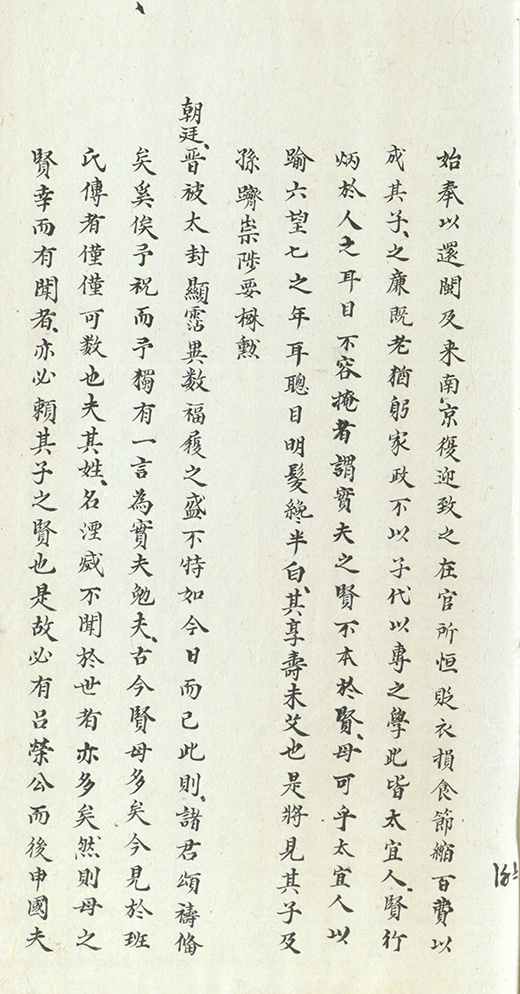 始奉以還閩及来南京復迎致之在官所恒貶衣損食節縮百費以
成其子之廉既老猶躬家政不以子代以專之學此皆太宜人賢行
炳於人之耳目不容掩者謂實夫之賢不本於賢母可乎太宜人以
踰六望七之年耳聰目明髮纔半白其享壽未艾也是將見其子及
孫躋崇陟要楙勲
朝廷晋被太封顯霑異数福履之盛不特如今日而已此則諸君頌禱俻
矣奚俟予祝而予獨有一言為實夫勉夫古今賢母多矣今見於班
氏傳者僅僅可数也夫其姓名湮烕不聞於世者亦多矣然則母之
賢幸而有聞者亦必賴其子之賢也是故必有吕榮公而後申國夫